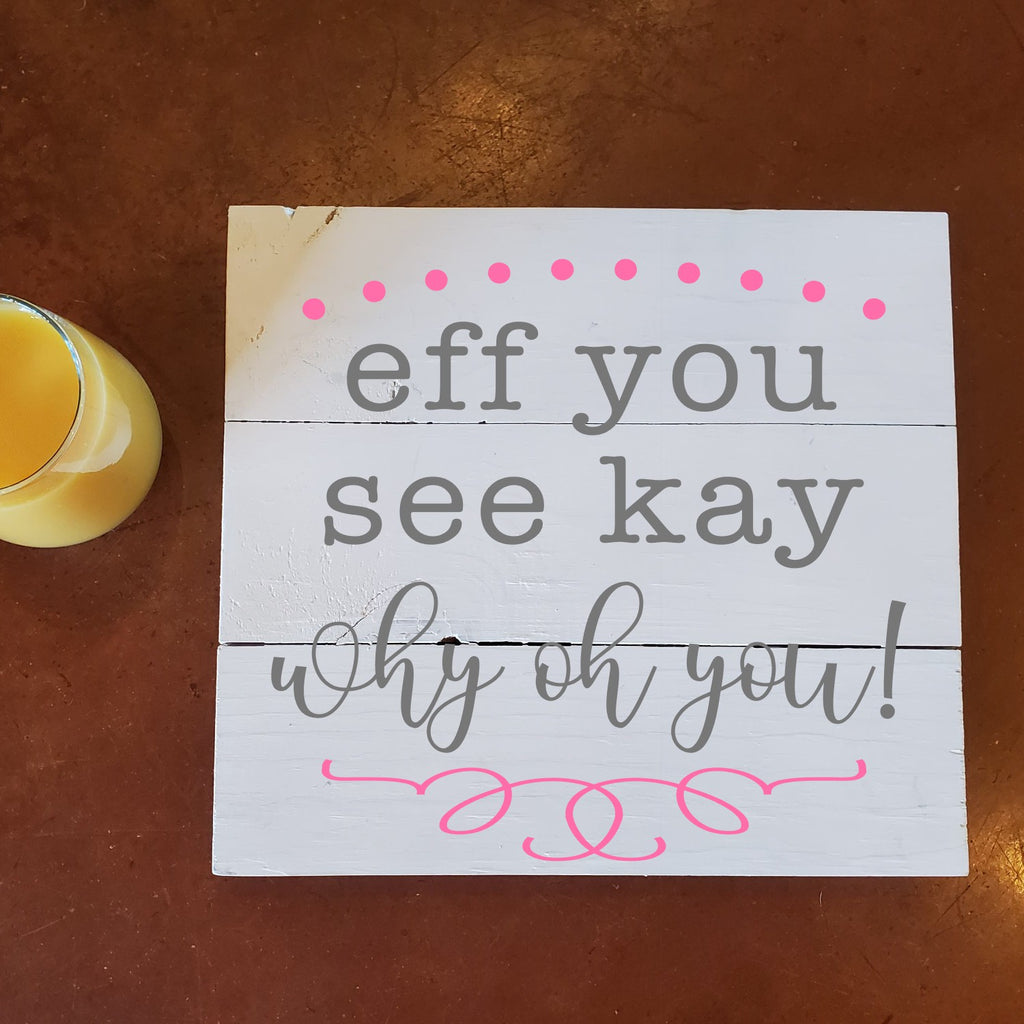 eff you
see kay
why oh you!